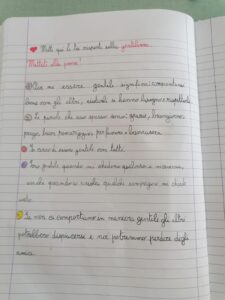 Metti qui le tue risposte sulla gentilezza.
Mettiti alla prova!
Per me essere gentile significa: comportarsi
bene con gli altri, aiutarli se hanno bisogno e rispettarli.
Le parole che uso spesso sono: grazie, buongiorno,
prego, buon pomeriggio, per favore e buonasera.
Io cerco di essere gentile con tutti.
Sono gentile quando mi chiedono qualcosa e
anche quando a scuola qualche compagno mi chiede
aiuto.
Se non ci comportiamo in maniera gentile gli altri
potrebbero dispiacersi e noi potremmo perdere degli
amici.